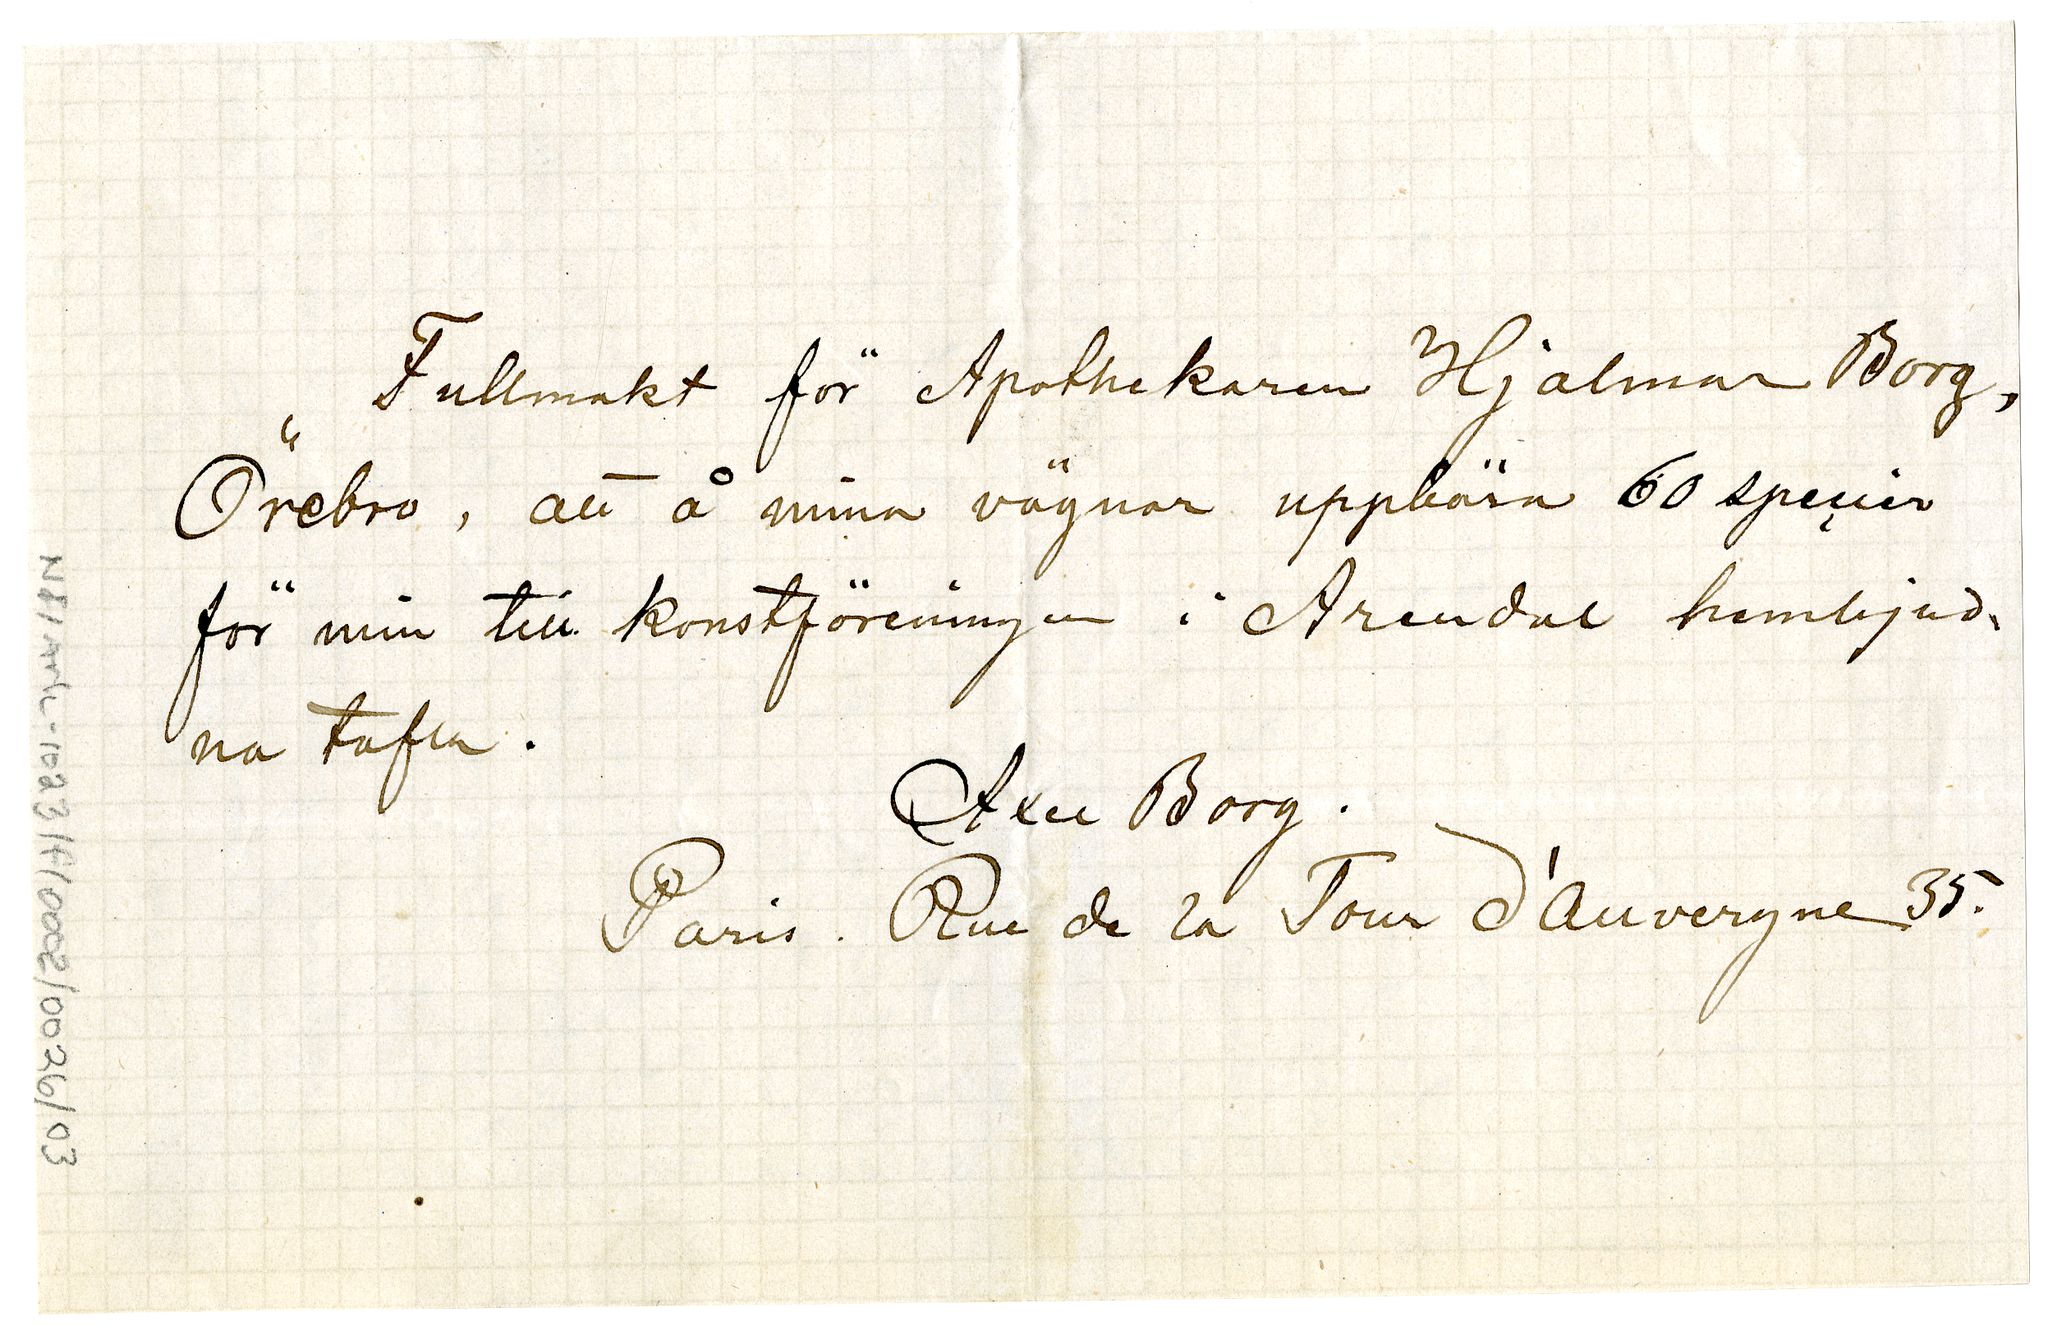 Fullmakt för Apothekaren Hjalmar Borg,
Örebro, att å mina vägnar uppbära 60 specier
för min till konstföreningen i Arendal hembjud-
na tafla.
Axel Borg.
Paris. Rue de la Tour d'Auvergne 35.
1023/F/0002/0026/03